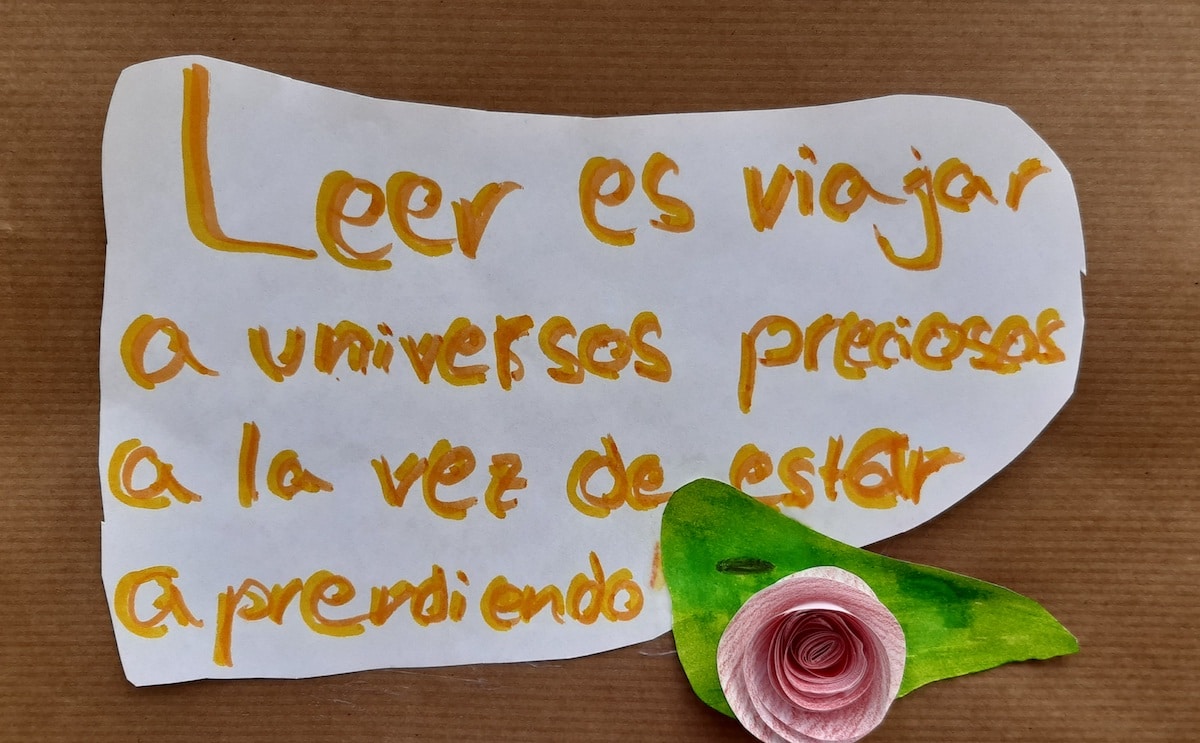 Leer es viajar
a universos preciosos
a la vez de estar
aprendiendo